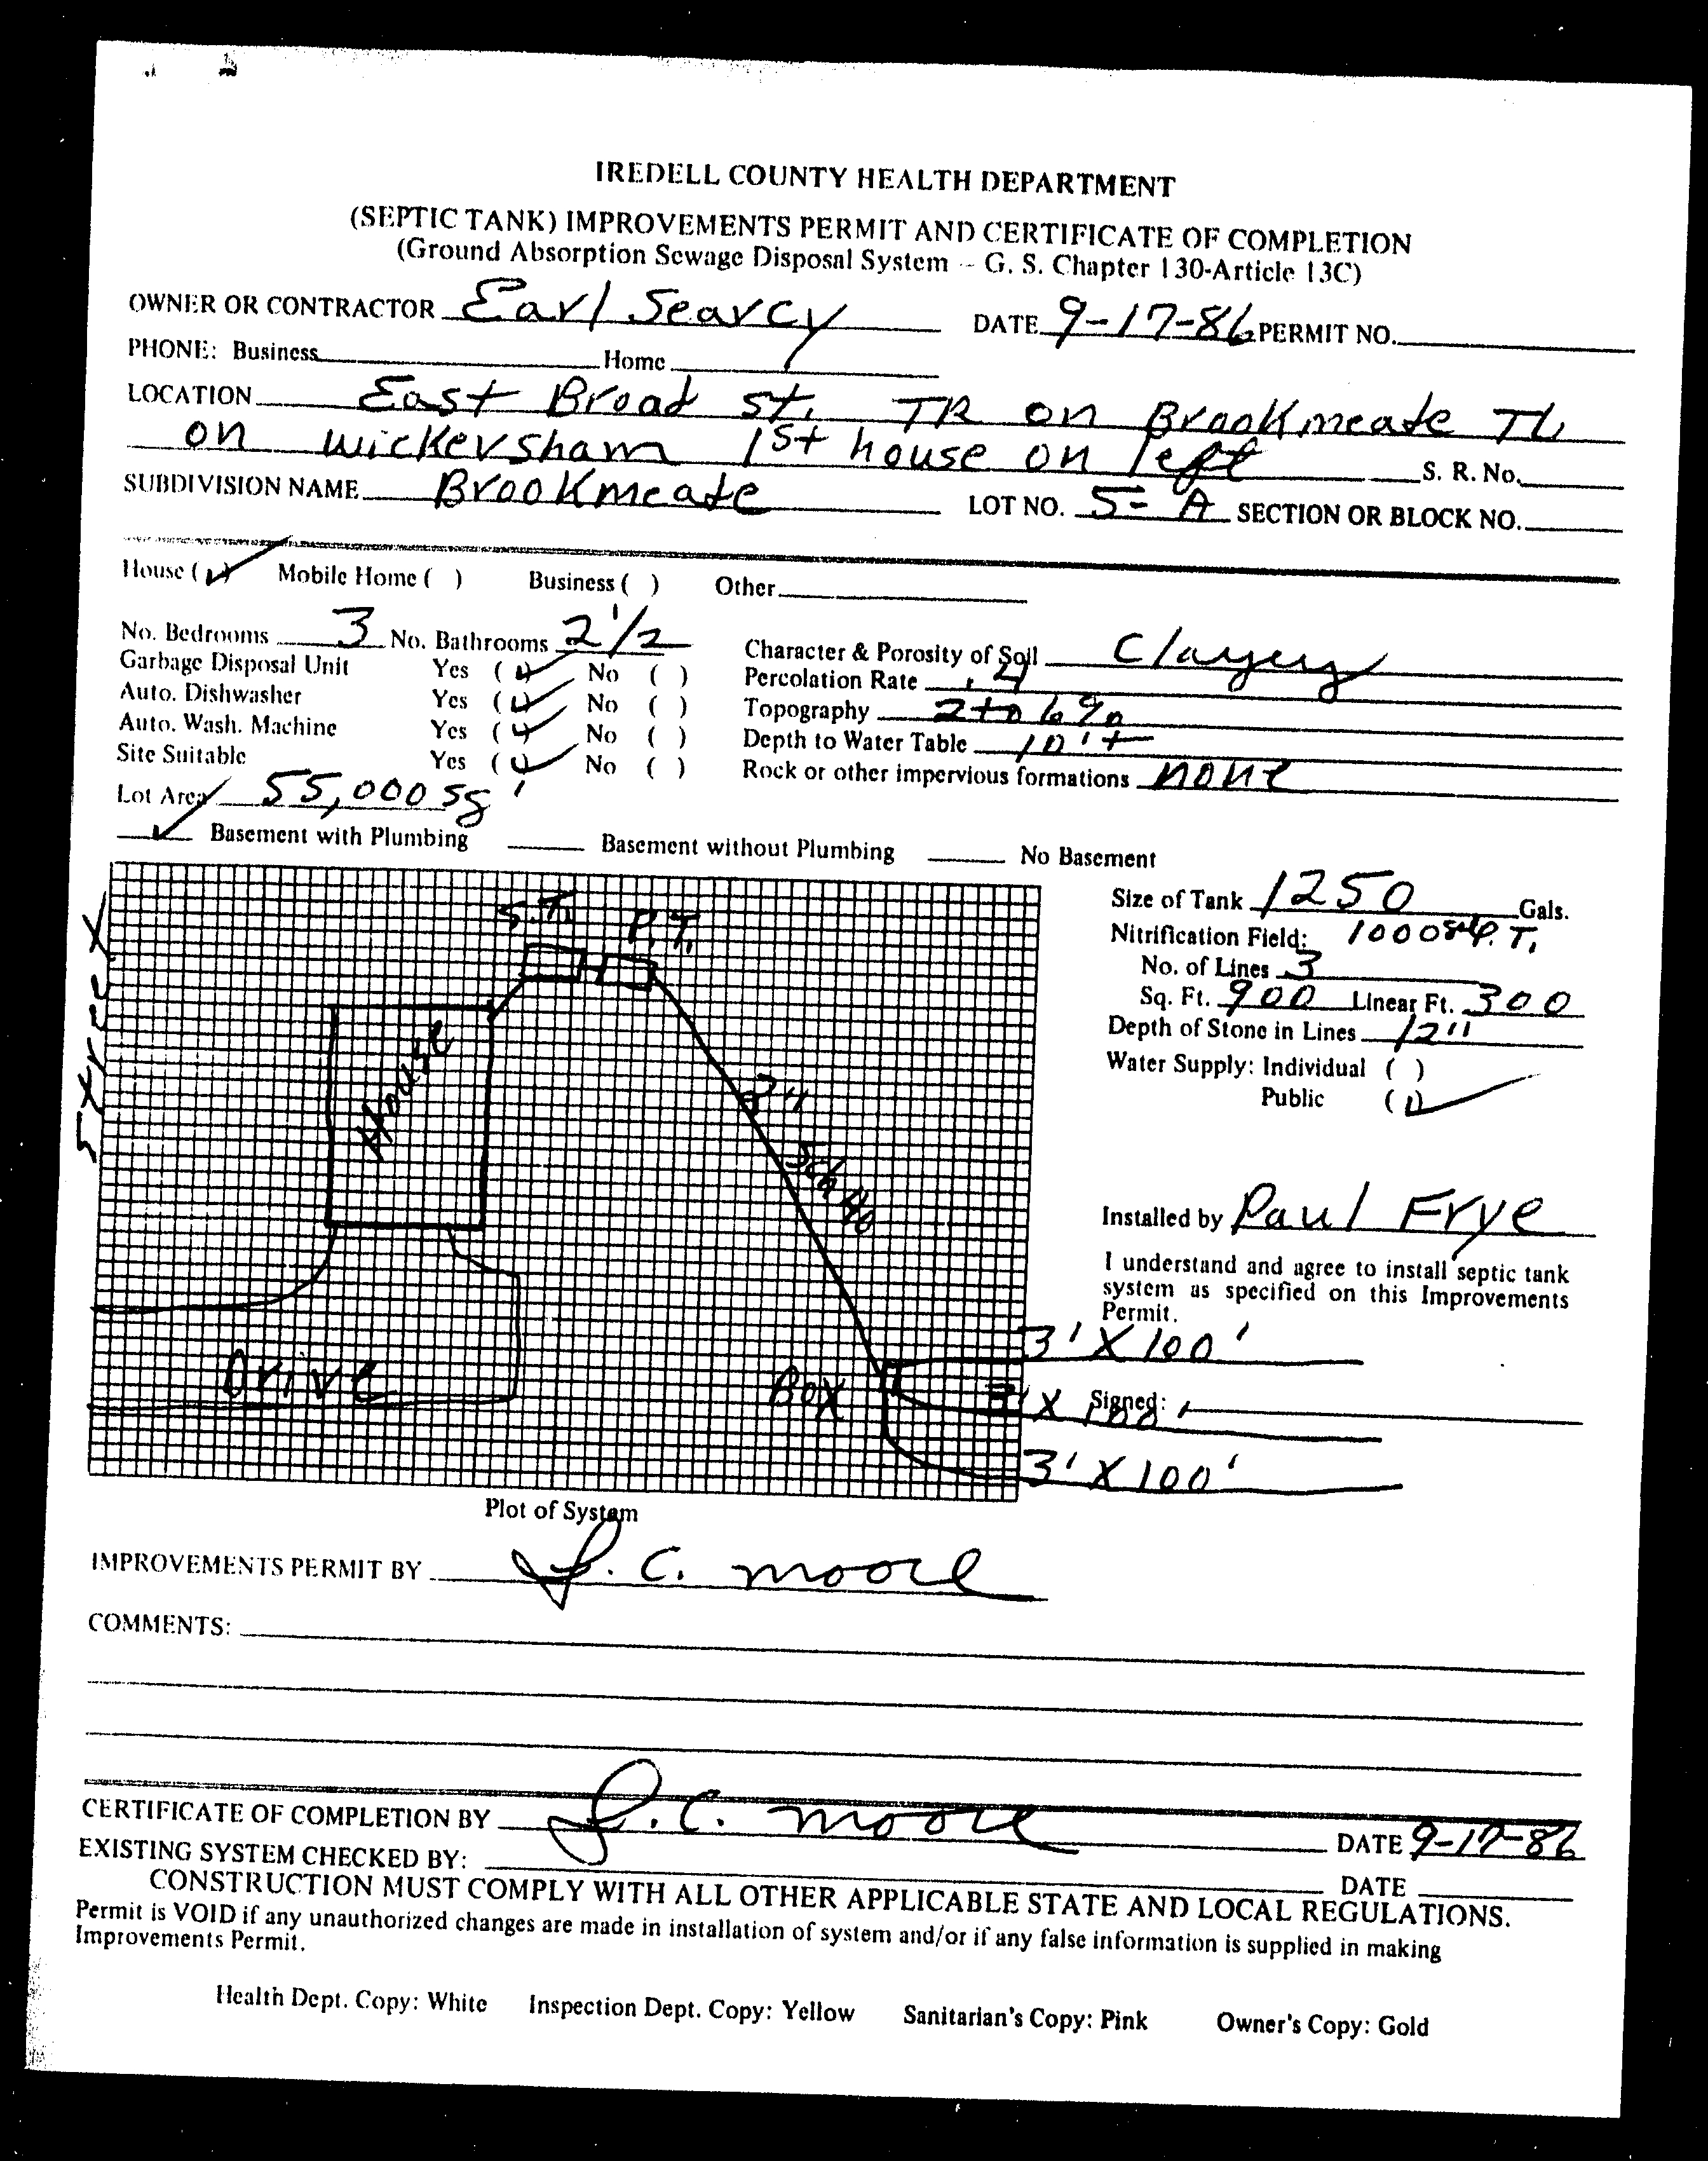 IREDELL COUNTY HEALTH DEPARTMENT
(SEPTIC TANK) IMPROVEMENTS PERMIT AND CERTIFICATE OF COMPLETION
(Ground Absorption Sewage Disposal System -- G. S. Chapter 130-Article 13C)
OWNER OR CONTRACTOR Earl Searcy DATE 9-17-86 PERMIT NO.
PHONE: Business Home
LOCATION East Broad St. TR on Brookmeade TL
on Wickersham 1st house on left S. R. No.
SUBDIVISION NAME Brookmeade LOT NO. 5-A SECTION OR BLOCK NO.
House (✓) Mobile Home ( ) Business ( ) Other
No. Bedrooms 3 No. Bathrooms 2 1/2
Character & Porosity of Soil Clayey
Garbage Disposal Unit Yes (✓) No ( )
Percolation Rate .4
Auto. Dishwasher Yes (✓) No ( )
Topography 2 to 6%
Auto. Wash. Machine Yes (✓) No ( )
Depth to Water Table 10'+
Site Suitable Yes (✓) No ( )
Rock or other impervious formations none
Lot Area 55,000 sq '
✓ Basement with Plumbing Basement without Plumbing No Basement
Street
S.T.
P.T.
House
2"
Sch 40
Drive
Box
Size of Tank 1250 Gals.
Nitrification Field: 1000 P.T.
No. of Lines 3
Sq. Ft. 900 Linear Ft. 300
Depth of Stone in Lines 12"
Water Supply: Individual ( )
Public (✓)
Installed by Paul Frye
I understand and agree to install septic tank
system as specified on this Improvements
Permit.
3' X 100'
3' X 100'
Signed:
3' X 100'
Plot of System
IMPROVEMENTS PERMIT BY J. C. Moore
COMMENTS:
CERTIFICATE OF COMPLETION BY J. C. Moore DATE 9-17-86
EXISTING SYSTEM CHECKED BY: DATE
CONSTRUCTION MUST COMPLY WITH ALL OTHER APPLICABLE STATE AND LOCAL REGULATIONS.
Permit is VOID if any unauthorized changes are made in installation of system and/or if any false information is supplied in making
Improvements Permit.
Health Dept. Copy: White Inspection Dept. Copy: Yellow Sanitarian's Copy: Pink Owner's Copy: Gold